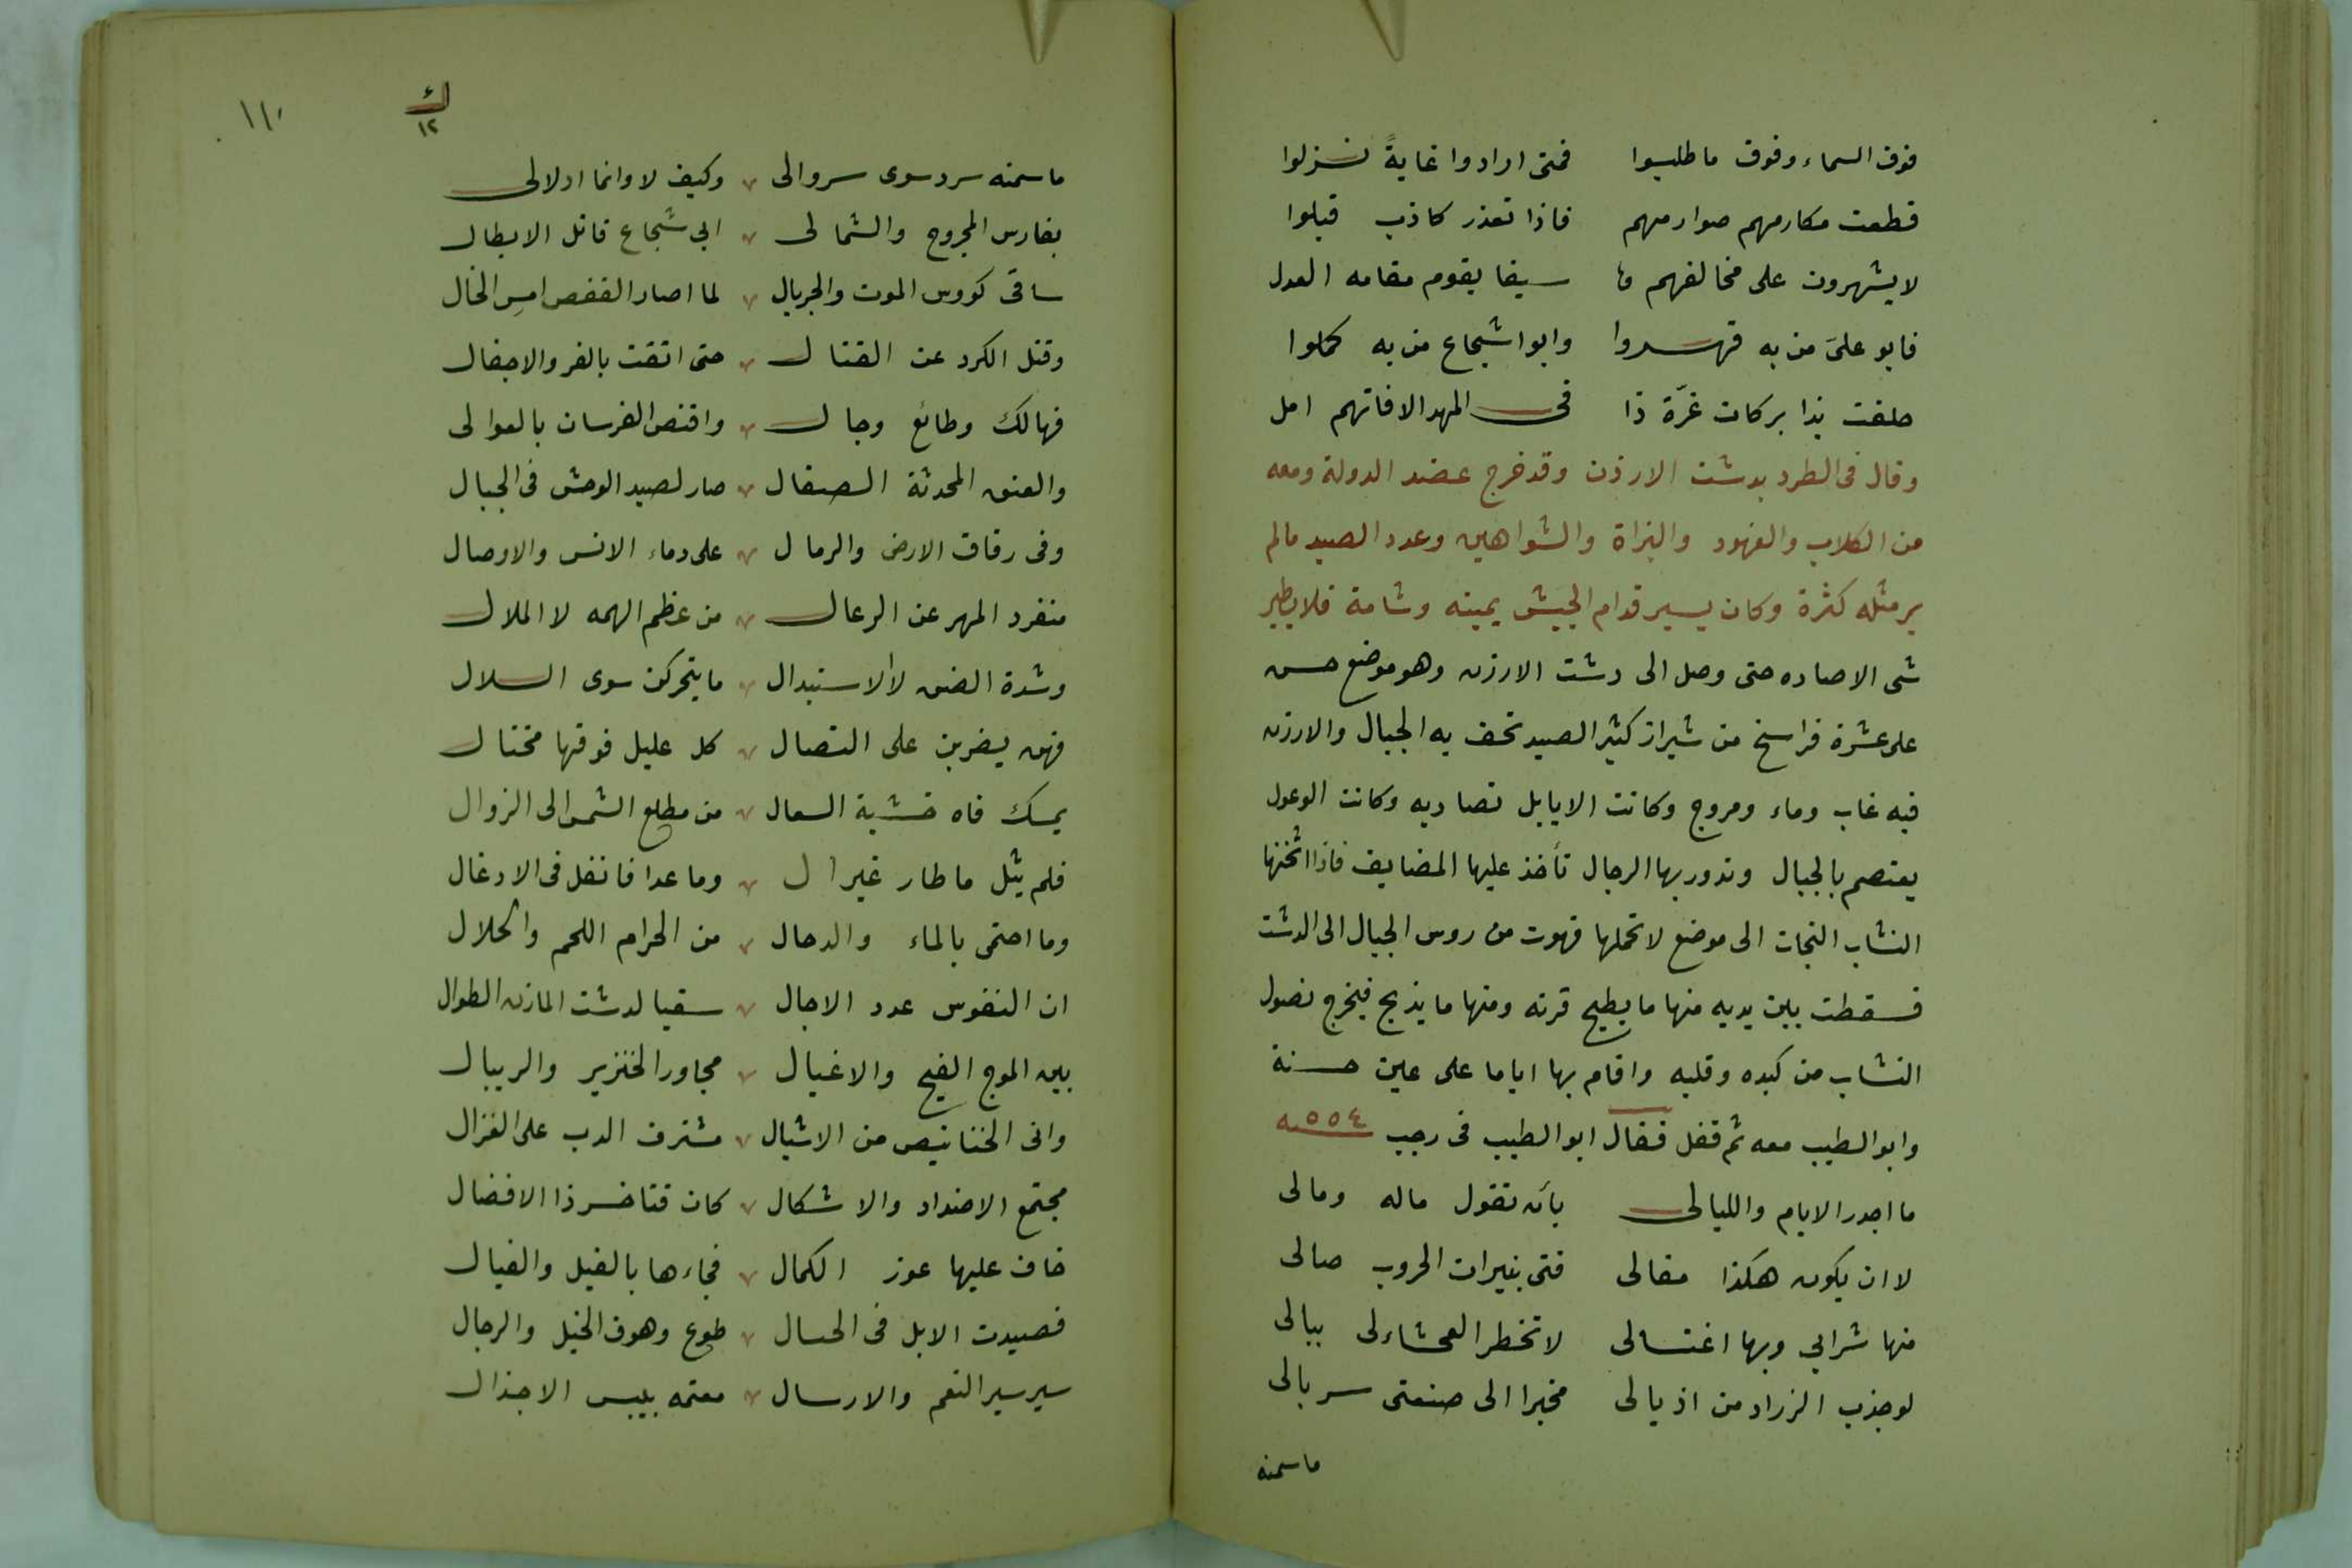 فوق السماء وفوق ما طلبوا فمتى ارادوا غايةً نزلوا
قطعت مكارمهم صوارمهم فاذا تعذر كاذب قبلوا
لا يشهرون على مخالفهم سيفا يقوم مقامه العدل
فابو علىّ من به قهروا وابوا شجاع من به كملوا
حلفت بذا بركات غرّة ذا فى المهد الافاتهم امل
وقال فى الطرد بدشت الارذن وقد خرج عضد الدولة ومعه
من الكلاب والفهود والبزاة والشواهين وعدد الصيد مالم
ير مثله كثرة وكان يسير قدام الجيش يمينه وشامة فلا يطير
شى الاصاده حتى وصل الى دشت الارزن وهو موضع حسن
على عشرة فراسخ من شيراز كثير الصيد تحف به الجبال والارزن
فيه غاب وماء ومروج وكانت الايايل تصاد به وكانت الوعول
يعتصم بالجبال وتدور بها الرجال تأخذ عليها المضايف فاذا اثخنها
النشاب النجات الى موضع لا تحملها فهوت من روس الجبال الى الدشت
فسقطت بين يديه منها ما يطيح قرنه ومنها ما يذبح فيخرج نصول
النشاب من كبده وقلبه واقام بها اياما على عين حسنة
وابو الطيب معه ثم قفل فقال ابو الطيب فى رجب ٥٥٤ـه
ما اجدر الايام والليالى بأن تقول ماله ومالى
لا ان يكون هكذا مقالى فتى بنيرات الحروب صالى
منها شرابي وبها اغتسالى لا تخطر الفحشاء لى ببالى
لو جذب الزراد من اذيالى مخيرا الى صنعتى سربالى
ماسمنه
١١٠
ك
١٢
ماسمنه سرد سوى سروالى وكيف لا وانما ادلالى
بفارس المجروح والشمالى ابى شجاع قاتل الابطال
ساقى كووس الموت والجريال لما اصار القفص امسِ الخال
وقتل الكرد عن القتال حتى اتقت بالفر والاجفال
فهالك وطائع وجال واقتص الفرسان بالعوالى
والعنق المحدثة الصقال صار لصيد الوحش فى الجبال
وفى رقاق الارض والرمال على دماء الانس والاوصال
منفرد المهر عن الرعال من عظم الهمه لا الملال
وشدة الضن لا الاستبدال ما يتحركن سوى السلال
فهن يضربن على التصال كل عليل فوقها مختال
يمسك فاه خشية السعال من مطلع الشمس الى الزوال
فلم يثل ما طار غير ال وما عدا فانغل فى الادغال
وما احتمى بالماء والدحال من الحرام اللحم والحلال
ان النفوس عدد الاجال سقيا لدشت المازن الطوال
بين الموج الفيح والاغيال مجاور الخنزير والريبال
وانى الخنانيص من الاشبال مشترف الدب على الغزال
مجتمع الاضداد والاشكال كان فتاخسر ذا الافضال
خاف عليها عوز الكمال فجاءها بالفيل والفيال
فصيدت الابل فى الحسال طوع وهوف الخيل والرجال
سير سير النعم والارسال معتمه ببيس الاجذال